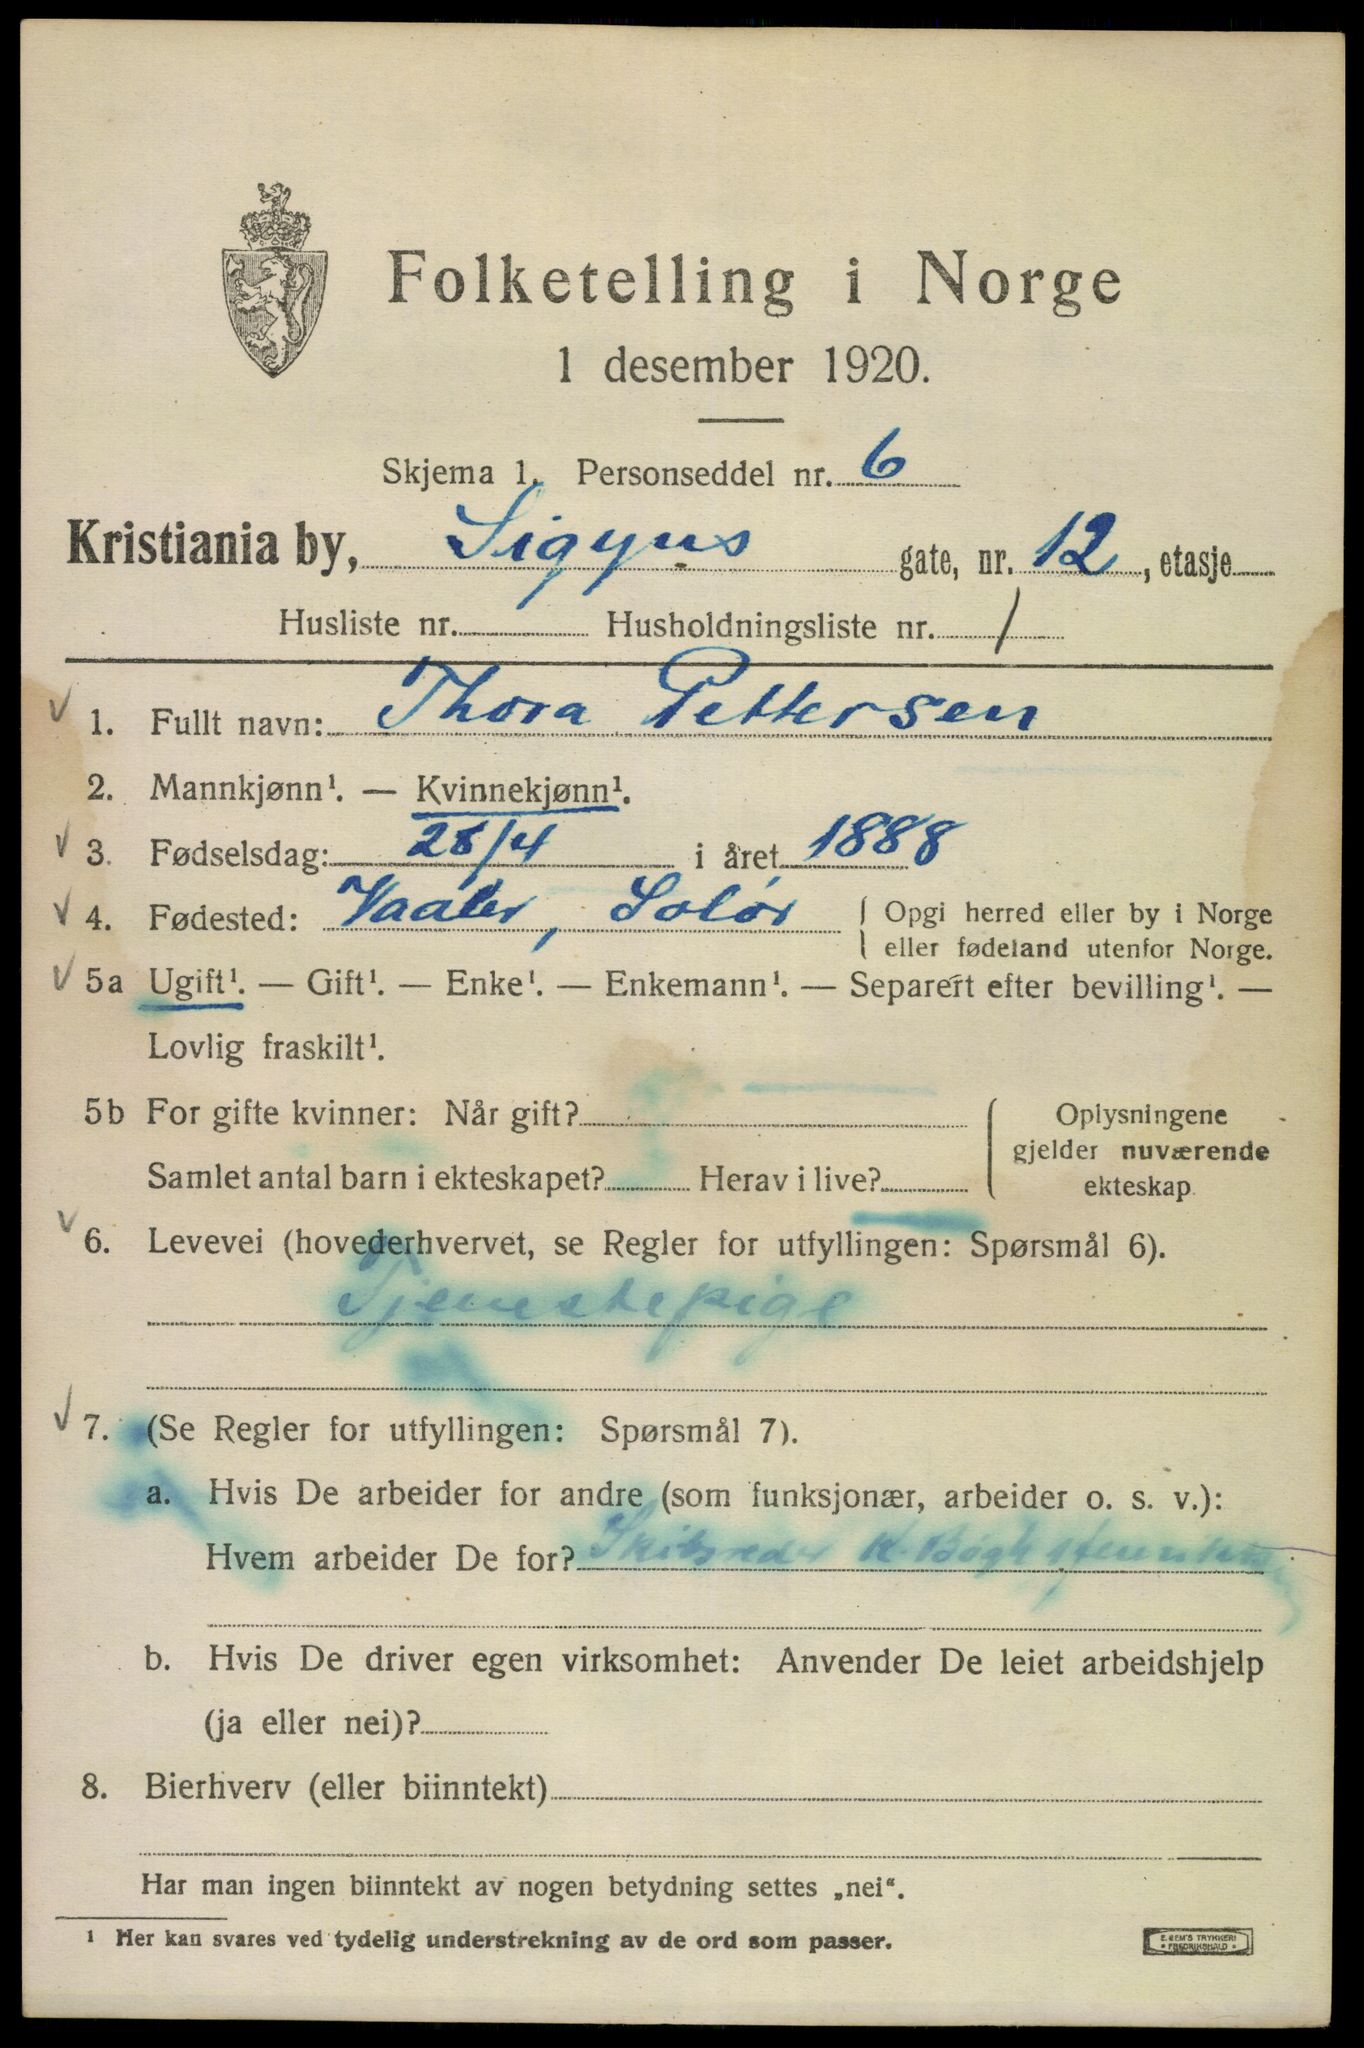 Folketelling i Norge
1 desember 1920.
Skjema 1. Personseddel nr. 6
Kristiania by, Sigyns gate, nr. 12, etasje
Husliste nr. Husholdningsliste nr. 1
1. Fullt navn: Thora Pettersen
2. Mannkjønn¹. — Kvinnekjønn¹.
3. Fødselsdag: 28/4 i året 1888
4. Fødested: Vaaler, Solør { Opgi herred eller by i Norge
eller fødeland utenfor Norge.
5a Ugift¹. — Gift¹. — Enke¹. — Enkemann¹. — Separert efter bevilling¹. —
Lovlig fraskilt¹.
5b For gifte kvinner: Når gift?
Samlet antal barn i ekteskapet? Herav i live?
Oplysningene
gjelder nuværende
ekteskap.
6. Levevei (hovederhvervet, se Regler for utfyllingen: Spørsmål 6).
Tjenestepige
7. (Se Regler for utfyllingen: Spørsmål 7).
a. Hvis De arbeider for andre (som funksjonær, arbeider o. s. v.):
Hvem arbeider De for? Skibsreder K. Bøgh
b. Hvis De driver egen virksomhet: Anvender De leiet arbeidshjelp
(ja eller nei)?
8. Bierhverv (eller biinntekt)
Har man ingen biinntekt av nogen betydning settes „nei“.
¹ Her kan svares ved tydelig understrekning av de ord som passer.
E. SEM'S TRYKKERI
• FREDRIKSHALD •